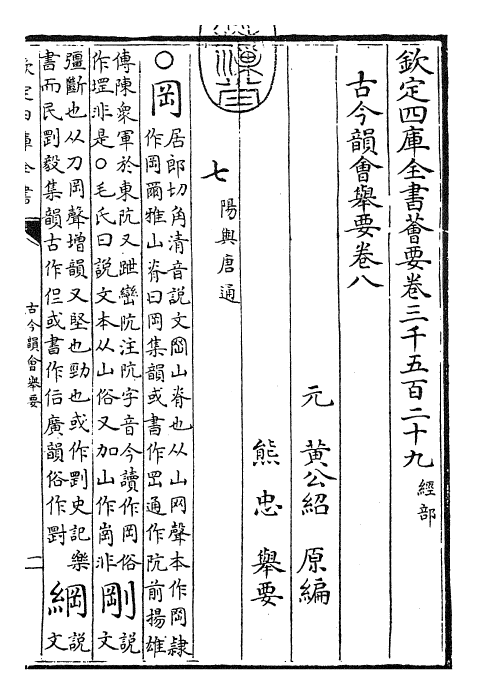 欽定四庫全書薈要卷三千五百二十九 經部
古今韻會舉要卷八
元 黃公紹 原編
熊忠 舉要
七 陽與唐通
○岡 居郎切角清音說文岡山脊也从山网聲本作岡隷
作岡爾雅山脊曰岡集韻或書作𦊆通作阬前揚雄
傳陳衆軍於東阬又跇巒阬注阬字音今讀作岡俗
作堽非是○毛氏曰說文本从山俗又加山作崗非 剛 說文
彊斷也从刀岡聲增韻又堅也勁也或作㓻史記樂
書而民㓻毅集韻古作𠇙或書作㐰廣韻俗作𠜿 綱 說文
欽定四庫全書
古今韻會舉要
二